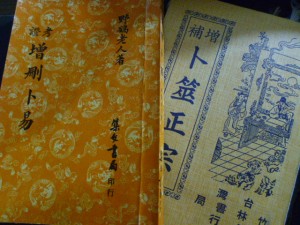 野鶴老人著
考證
增刪卜易
集文書局印行
增補
卜筮正宗
台灣
竹林書局
行